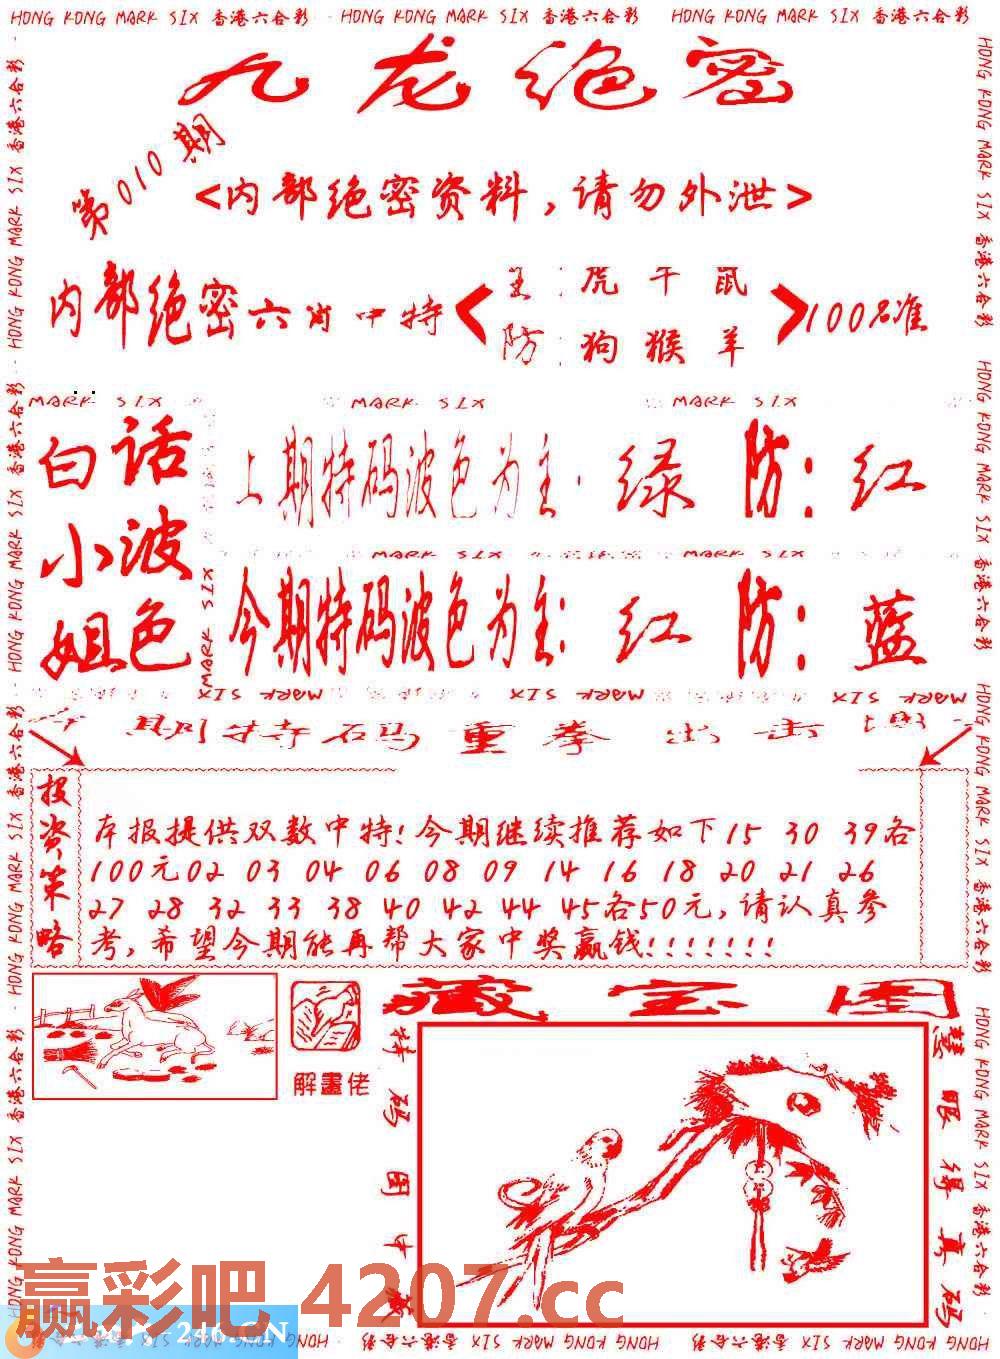 HONG KONG MARK SIX 香港六合彩 HONG KONG MARK SIX 香港六合彩 HONG KONG MARK SIX 香港六合彩
九龙绝密
第010期
<内部绝密资料，请勿外泄>
内部绝密六肖中特
主：虎牛鼠
防：狗猴羊
100%准
MARK SIX MARK SIX MARK SIX
白话
小波
姐色
上期特码波色为主：绿 防：红
MARK SIX MARK SIX
今期特码波色为主：红 防：蓝
MARK SIX
MARK SIX MARK SIX MARK SIX
期特码重拳出击
投资策略
本报提供双数中特！今期继续推荐如下15 30 39各
100元02 03 04 06 08 09 14 16 18 20 21 26
27 28 32 33 38 40 42 44 45各50元，请认真参
考，希望今期能再帮大家中奖赢钱！！！！！！！
解畫佬
藏宝图
特码图中
慧眼得真码
赢彩吧 4207.cc
246.CN
HONG KONG MARK SIX 香港六合彩